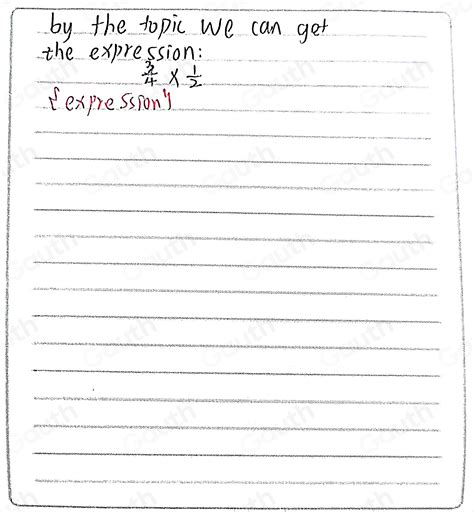 by the topic we can get
the expression:
3/4 × 1/2
{expression}